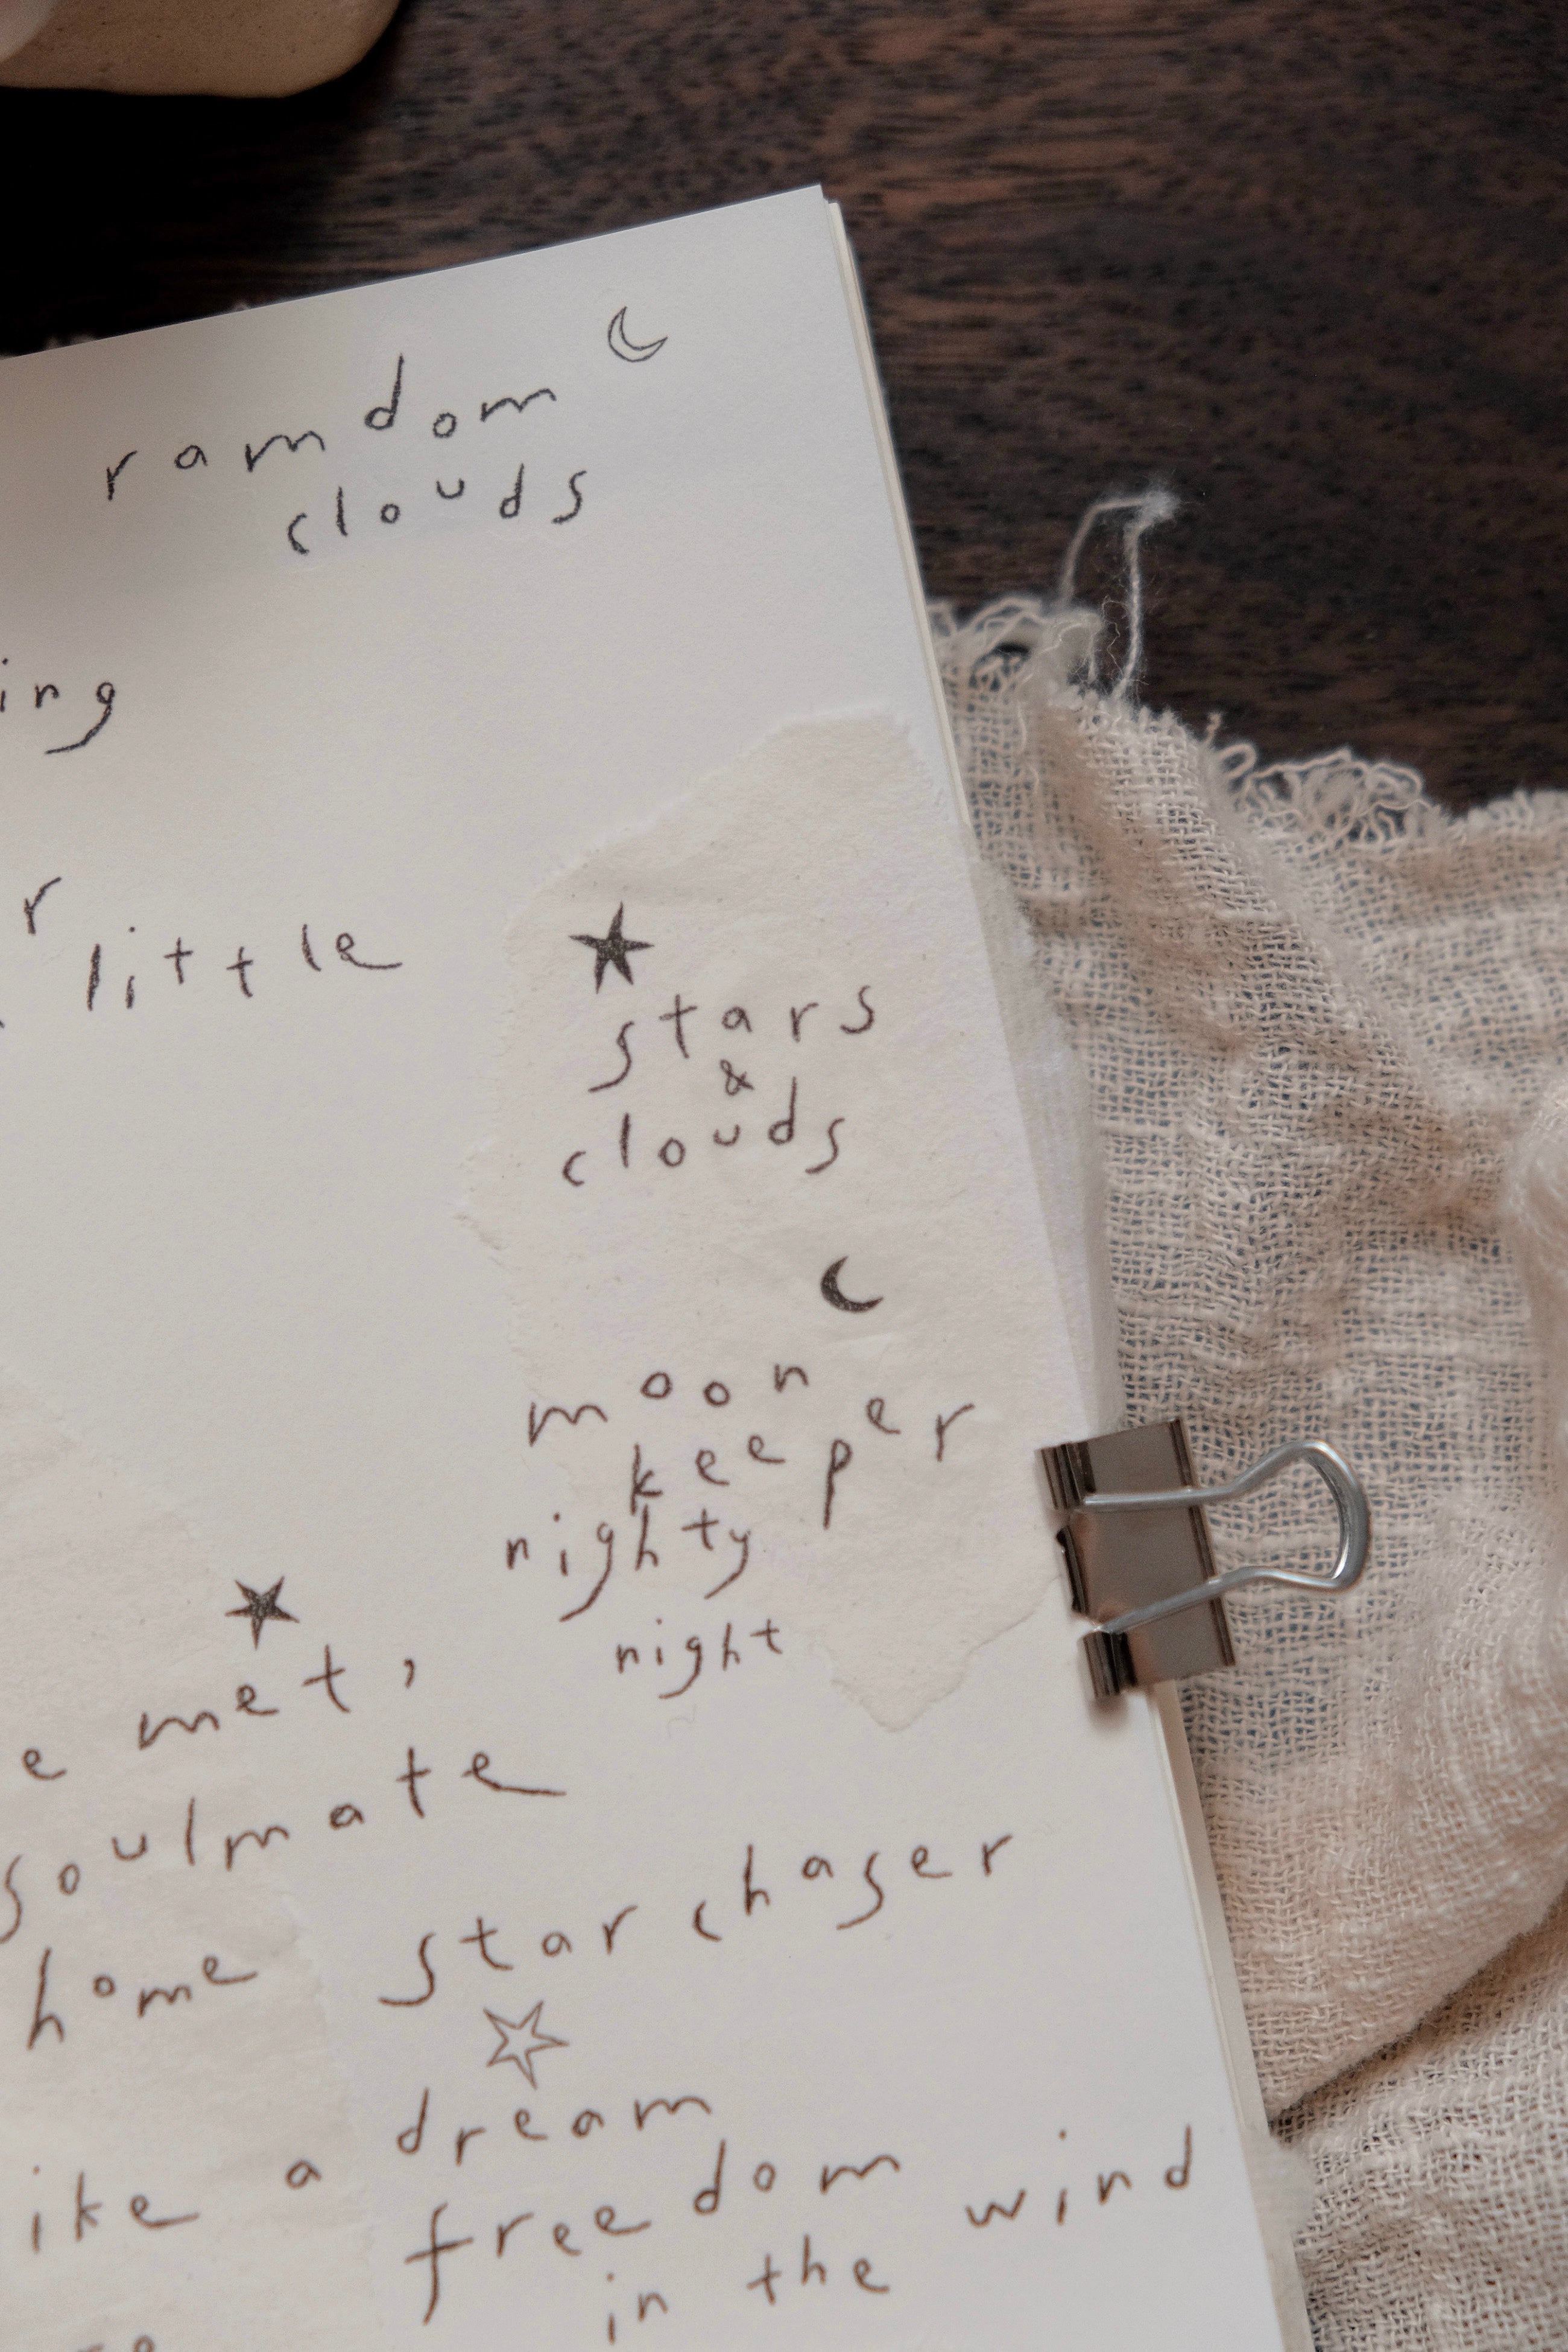 ramdom
clouds
ing
r
little
stars
&
clouds
moon
keeper
nighty
night
e met,
soulmate
home
star chaser
ike a dream
freedom
in the wind